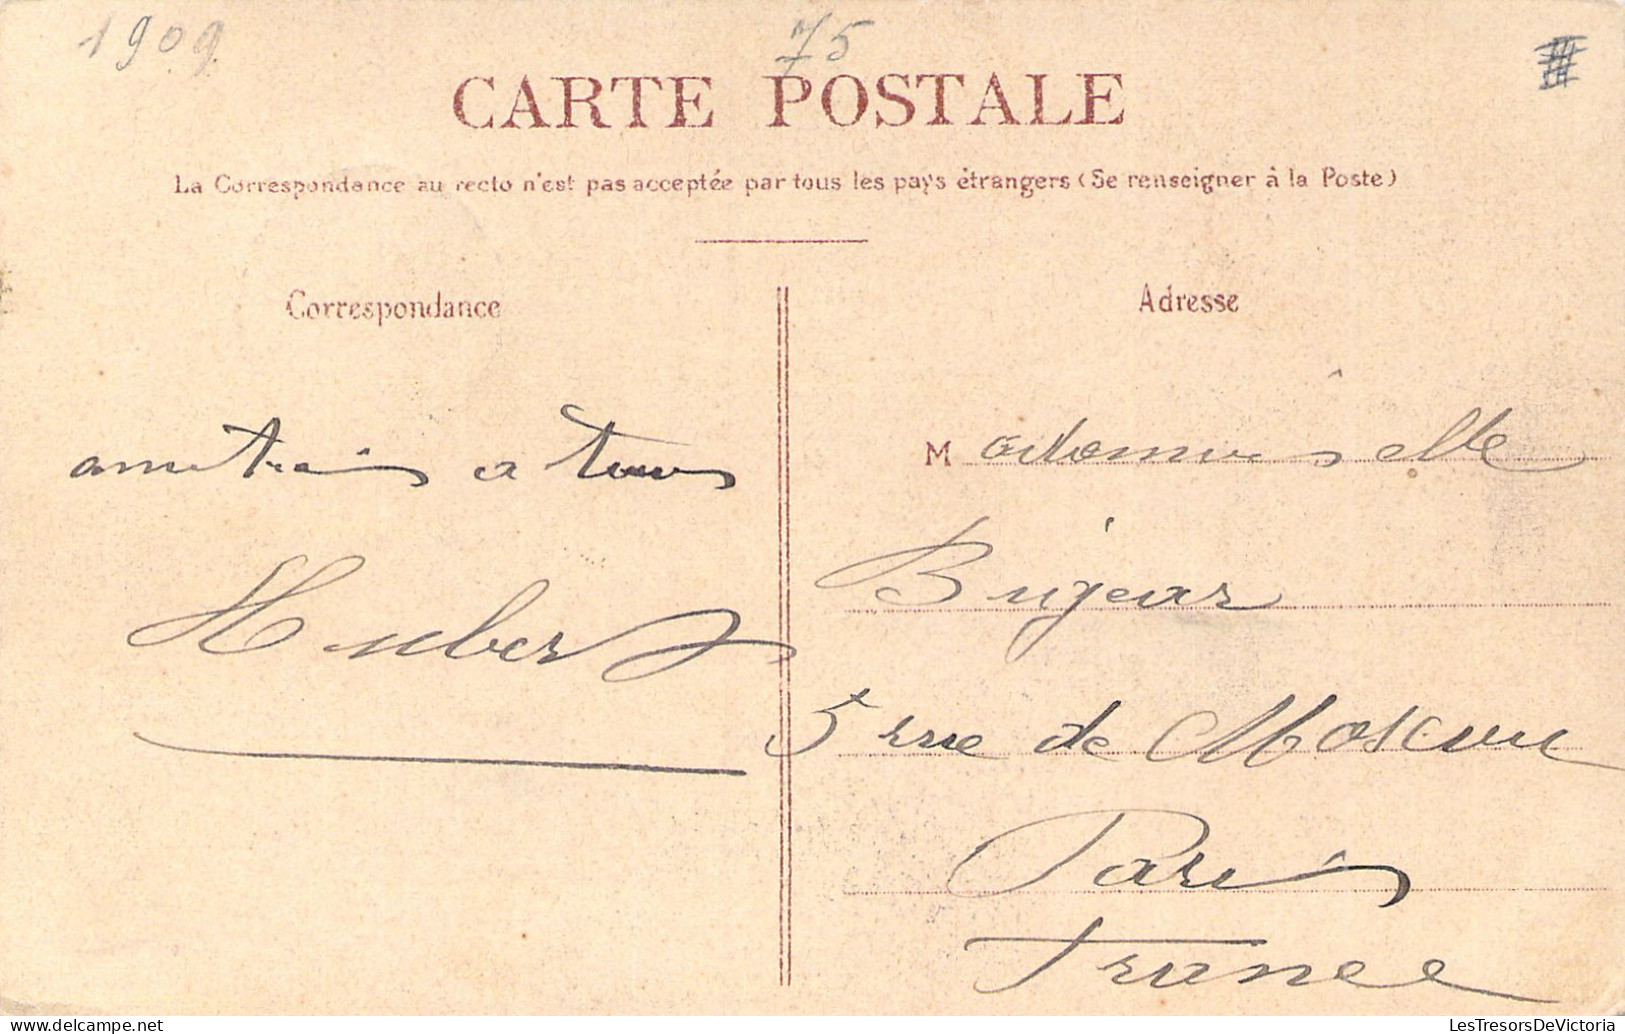 1909
75
CARTE POSTALE
La Correspondance au recto n'est pas acceptée par tous les pays étrangers (Se renseigner à la Poste)
Correspondance
Adresse
a tous
Hubert
Mademoiselle
5 rue de Moscou
Paris
France
LesTresorsDeVictoria